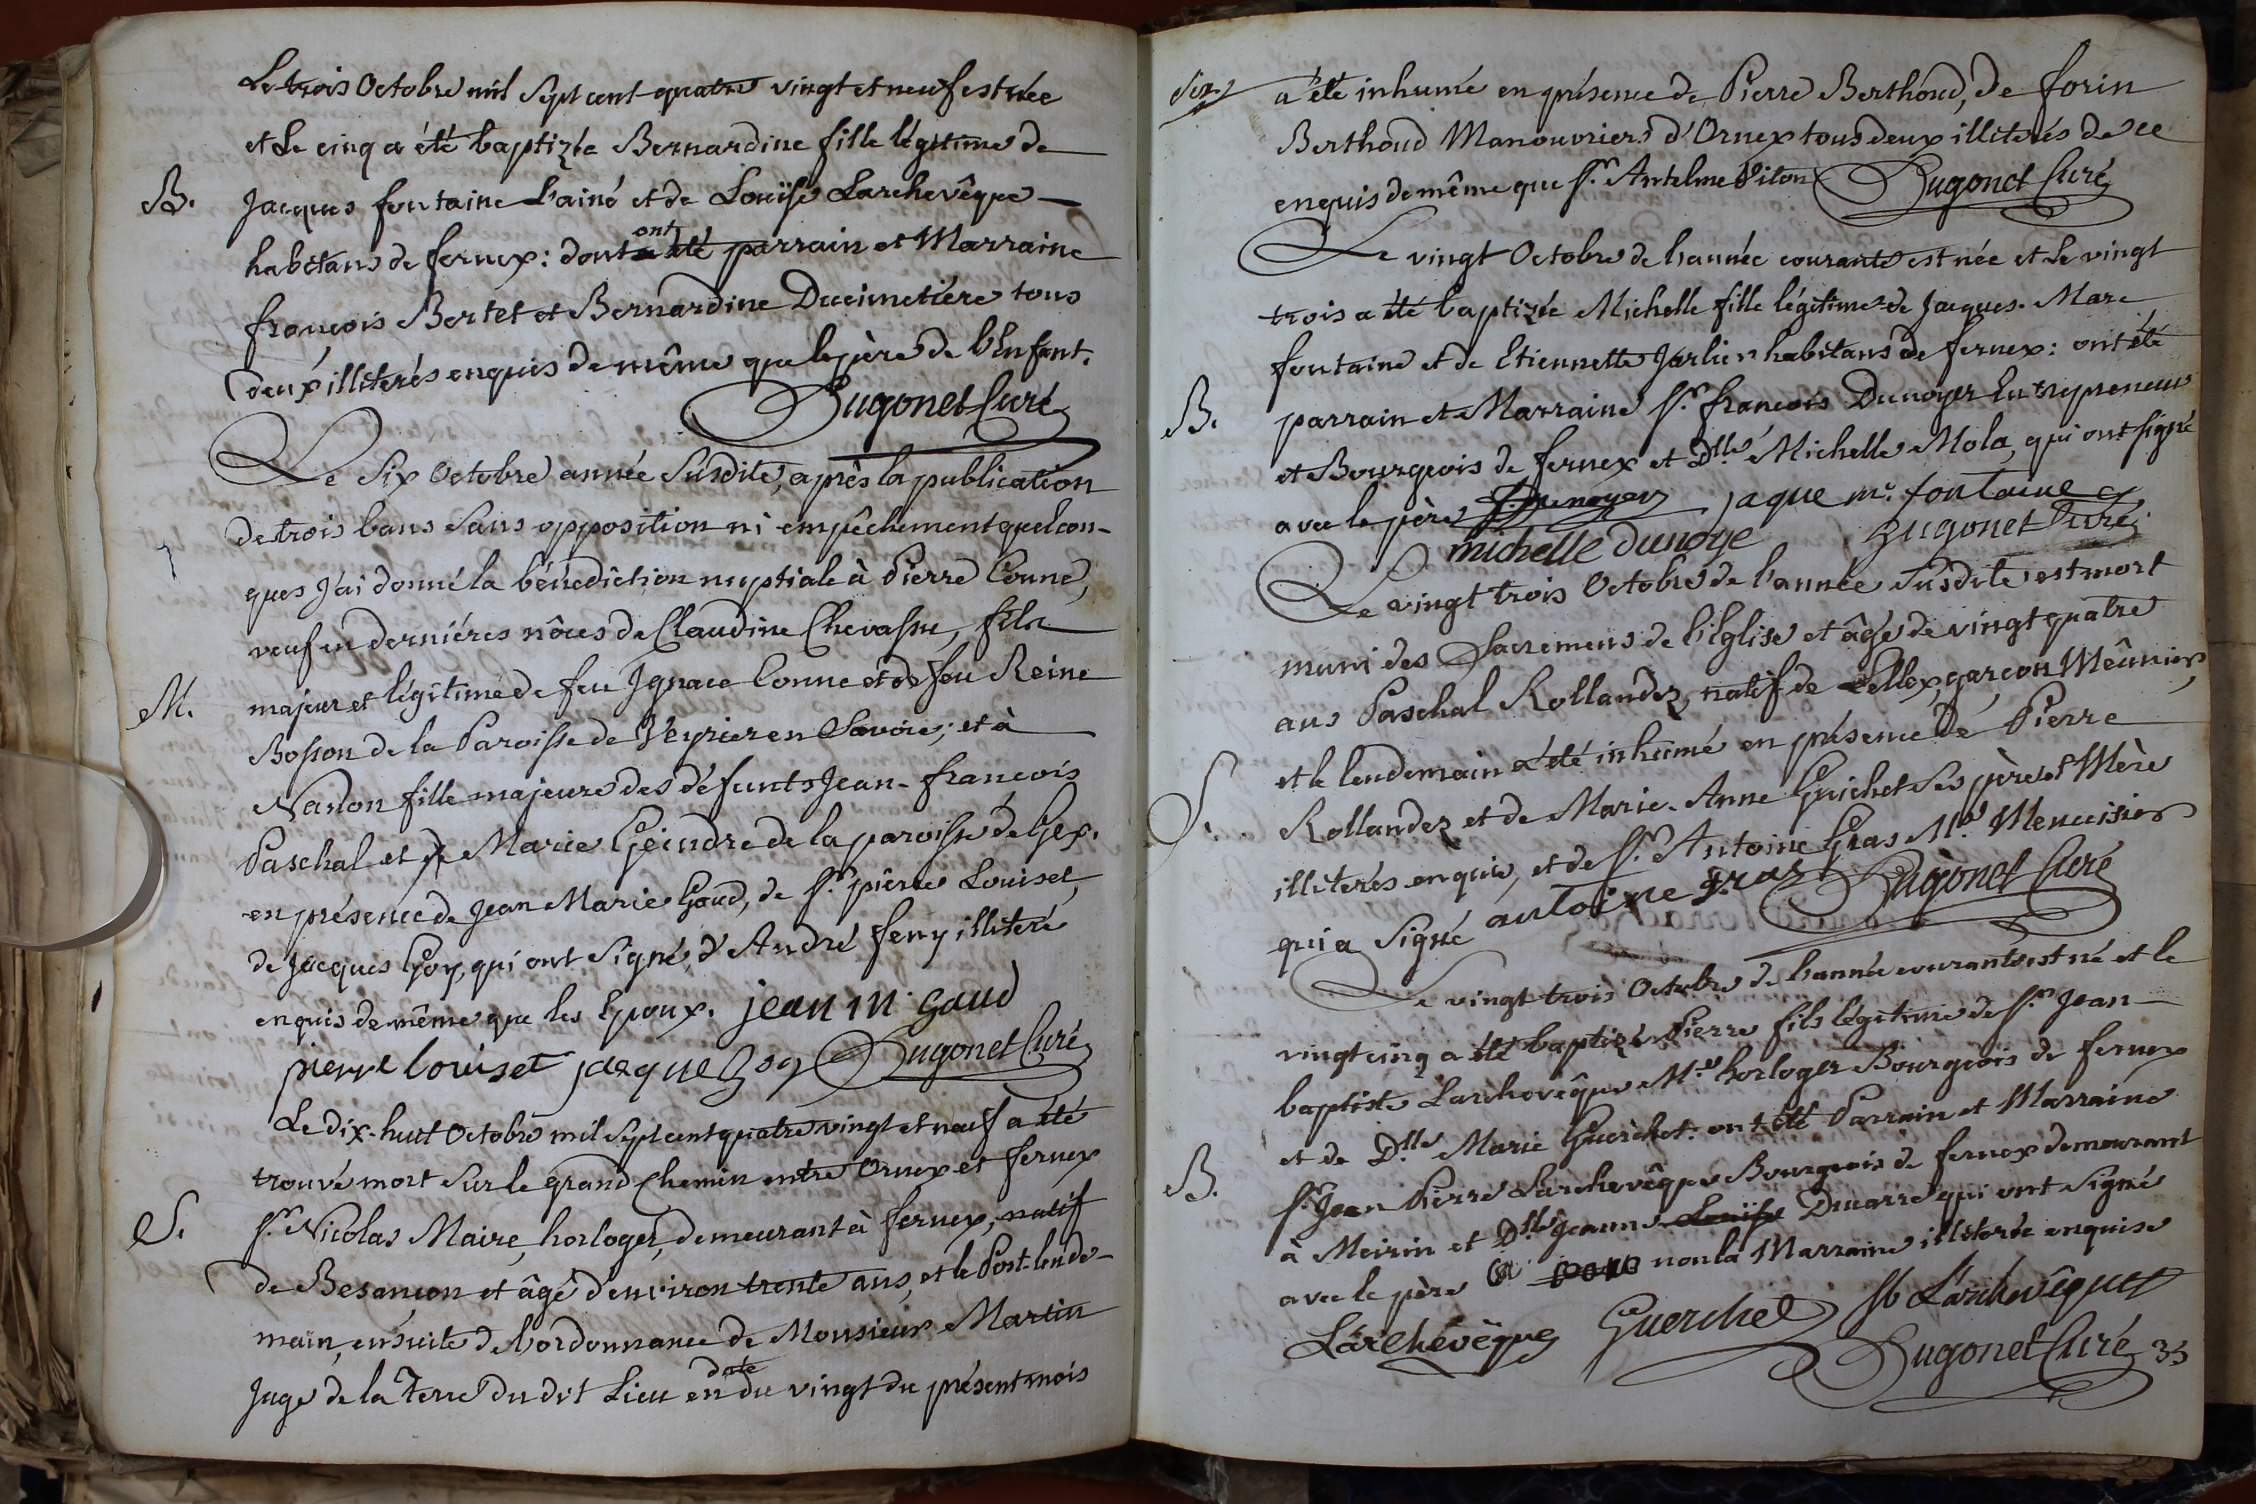 Le trois Octobre mil Sept cent quatre vingt et neuf est née
et Le cinq a été baptizée Bernardine fille légitime de
B.
Jacques fontaine l'ainé et de Louïse Larchevêque
habitans de fernex: dont ont été parrain et Marraine
françois Bertet et Bernardine Ducimetiére tous
deux illiterés enquis de même que le père de l'Enfant.
Dugonet Curé
Le Six Octobre année Susdite, après la publication
de trois bans Sans opposition ni empêchement quelcon-
ques J'ai donné la bénediction nuptiale à Pierre Conne,
veuf en derniéres nôces de Claudine Chevassu, fils
M.
majeur et légitime de feu Jgnace Conne et de feu Reine
Bosson de la Paroisse de Veyrier en Savoie; et à
Nanon fille majeure des défunts Jean-françois
Paschal et de Marie Geindre de la paroisse de Gex.
en présence de Jean Marie Gaud, de Sr. pierre Louiset,
de Jacques Goy, qui ont Signé, d'André feny illiteré
enquis de même que les Epoux. jean m gaud
pierre louiset jacque goy Dugonet Curé
Le dix-huit Octobre mil Sept cent quatre vingt et neuf a été
trouvé mort Sur le grand Chemin entre Ornex et fernex
S.
Sr. Nicolas Maire, horloger, demeurant à fernex, natif
de Besançon et âgé d'environ trente ans, et le Post-lende-
main, ensuite de l'ordonnance de Monsieur Martin
Juge de la Terre du dit Lieu en date du vingt du présent mois
a été inhumé en présence de Pierre Berthoud, de forin
Berthoud Manouvriers d'Ornex tous deux illiterés de ce
enquis de même que Sr. Antelme Viton Dugonet Curé
Le vingt Octobre de l'année courante est née et Le vingt
trois a été baptizée Michelle fille légitime de Jacques-Marc
fontaine et de Etiennette Jarlier habitans de fernex: ont été
B.
parrain et Marraine Sr. françois Dunoyer Entrepreneur
et Bourgeois de fernex et Dlle Michelle Mola, qui ont signé
avec le père f. Dunoyer jaque mc. fontaine
michelle dunoye Dugonet Curé
Le vingt trois Octobre de l'année Susdite est mort
muni des Sacremens de l'Eglise et âgé de vingt quatre
ans Paschal Rollandez, natif de Pellex, garçon Meûnier,
et le lendemain a été inhumé en présence de Pierre
S.
Rollandez et de Marie-Anne Guichet Ses père et Mère
illiterés enquis, et de Sr. Antoine Gras Me. Menuisier
qui a Signé antoine gras Dugonet Curé
Le vingt trois Octobre de l'année courante est né et le
vingt cinq a été baptizé Pierre fils légitime de Sr. Jean
baptiste Larchevêque Me. horloger Bourgeois de fernex
et de Dlle Marie Guerchet: ont été Parrain et Marraine
B.
Sr. Jean Pierre Larchevêque Bourgeois de fernex demeurant
à Meirin et Dlle Jeanne Louïse Ducarre qui ont Signé
avec le père non la Marraine illiterée enquise
Larchevêque Guerchet Larchevêque
Dugonet Curé 33